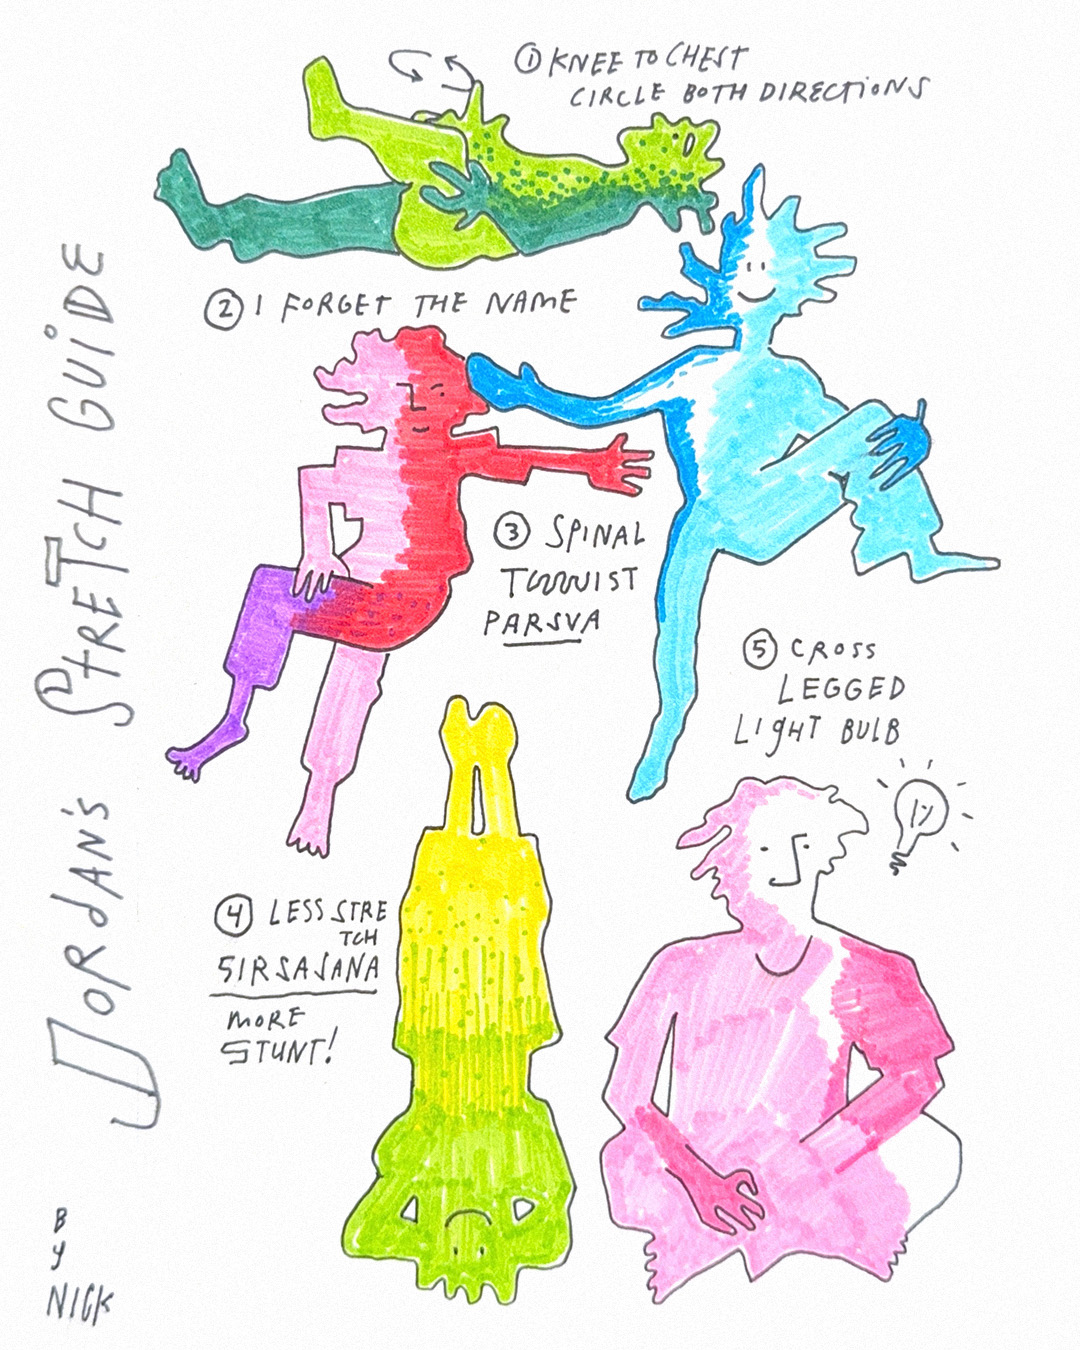 JORDAN'S STRETCH GUIDE
① KNEE TO CHEST
CIRCLE BOTH DIRECTIONS
② I FORGET THE NAME
③ SPINAL
TWWWIST
PARSVA
④ LESS STRE
TCH
SIRSASANA
MORE
STUNT!
⑤ CROSS
LEGGED
LIGHT BULB
B
Y
NICK